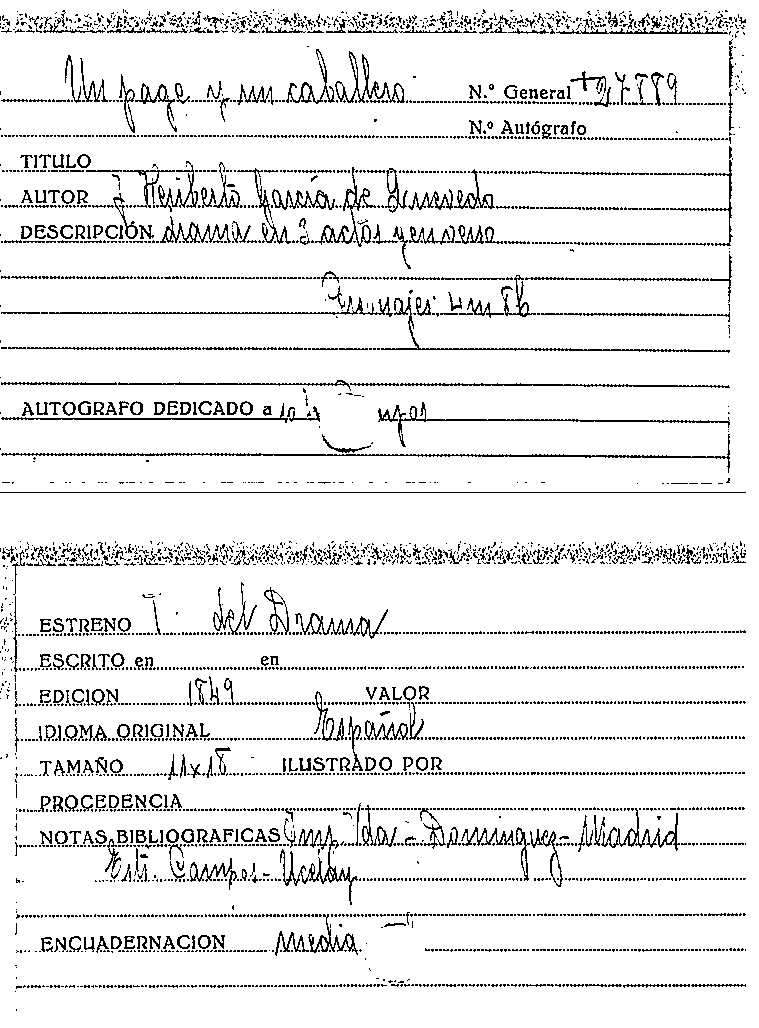 Un page y un caballero
N.º General +27889
N.º Autógrafo
TITULO
AUTOR J Heriberto García de Quevedo
DESCRIPCIÓN drama en 3 actos y en verso
Personajes: 4m 8h
AUTOGRAFO DEDICADO a
ESTRENO T. del Drama
ESCRITO en en
EDICION 1849 VALOR
IDIOMA ORIGINAL Español
TAMAÑO 11x18 ILUSTRADO POR
PROCEDENCIA
NOTAS BIBLIOGRAFICAS Imp. Vda - Dominguez - Madrid
Campos - Ucelay
ENCUADERNACION media